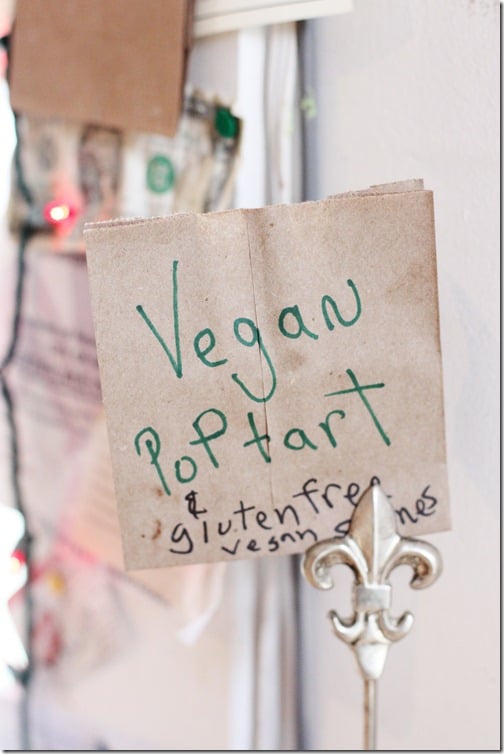 Vegan
PoPtart
&
glutenfree
vegan